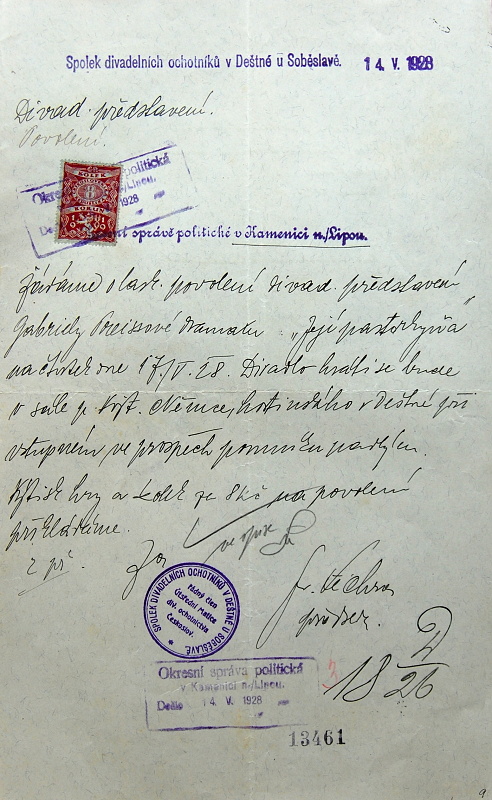 Spolek divadelních ochotníků v Deštné u Soběslavě. 14. V. 1928
Divad. představení.
Povolení.
Okresní politická
n./Lipou.
1928
KOLEK
8
KORUN
správě politické v Kamenici n./Lipou.
Žádáme o lask. povolení divad. představení
Gabriely Preissové dramatu: „Její pastorkyňa"
na čtvrtek dne 17/V. 28. Divadlo hráti se bude
v sále p. Kryšt. Němce, hostinského v Deštné při
vstupném ve prospěch pomníku padlým.
Výtisk hry a kolek za 8 Kč na povolení
přikládáme.
2 př.
Za
ve spise
SPOLEK DIVADELNÍCH OCHOTNÍKŮ V DEŠTNÉ U SOBĚSLAVĚ.
řádný člen
Ústřední Matice
div. ochotnictva
Českoslov.
předsed.
Okresní správa politická
v Kamenici n./Lipou.
Došlo 14. V. 1928
3
18 26
13461